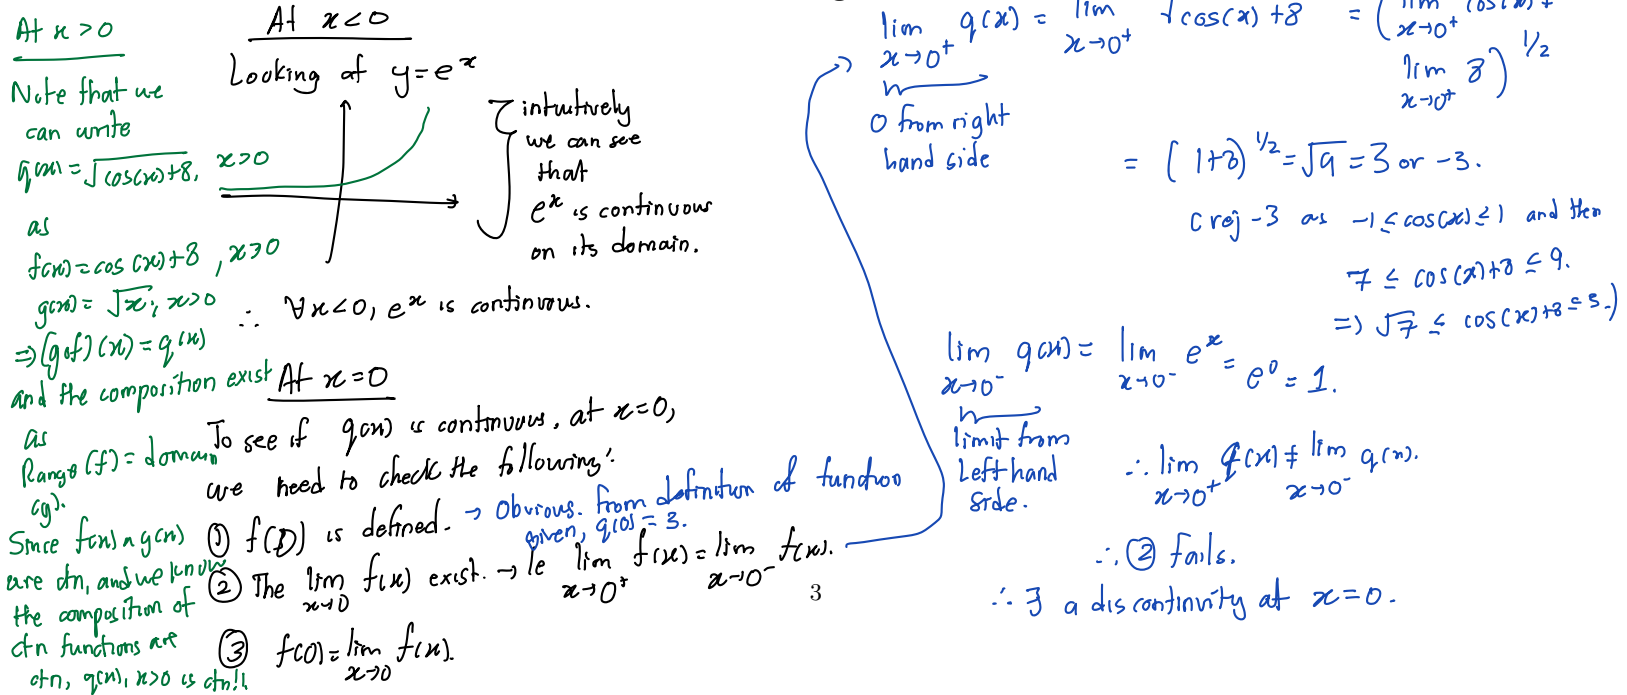 At x>0
Note that we
can write
q(x) = √cos(x)+8, x>0
as
f(x) = cos(x)+8, x>0
g(x) = √x, x>0
⇒ (gof)(x) = q(x)
and the composition exist
as
Range(f) = domain
(g).
Since f(x) ∧ g(x)
are ctn, and we know
the composition of
ctn functions are
ctn, q(x), x>0 is ctn!!
At x<0
Looking at y=e^x
intuitively
we can see
that
e^x is continuous
on its domain.
∴ ∀x<0, e^x is continuous.
At x=0
To see if q(x) is continuous, at x=0,
we need to check the following:
① f(D) is defined. → Obvious. From definition of function
given, q(0) = 3.
② The lim x→0 f(x) exist. → Ie lim x→0⁺ f(x) = lim x→0⁻ f(x).
③ f(0) = lim x→0 f(x).
3
lim x→0⁺ q(x) = lim x→0⁺ √cos(x)+8 = (lim x→0⁺ cos(x)+
lim x→0⁺ 8)^1/2
0 from right
hand side
= (1+8)^1/2 = √9 = 3 or -3.
(rej -3 as -1≤cos(x)≤1 and then
7 ≤ cos(x)+8 ≤ 9.
⇒ √7 ≤ cos(x)+8 ≤ 3.)
lim x→0⁻ q(x) = lim x→0⁻ e^x = e^0 = 1.
limit from
left hand
side.
∴ lim x→0⁺ q(x) ≠ lim x→0⁻ q(x).
∴ ② fails.
∴ ∃ a discontinuity at x=0.